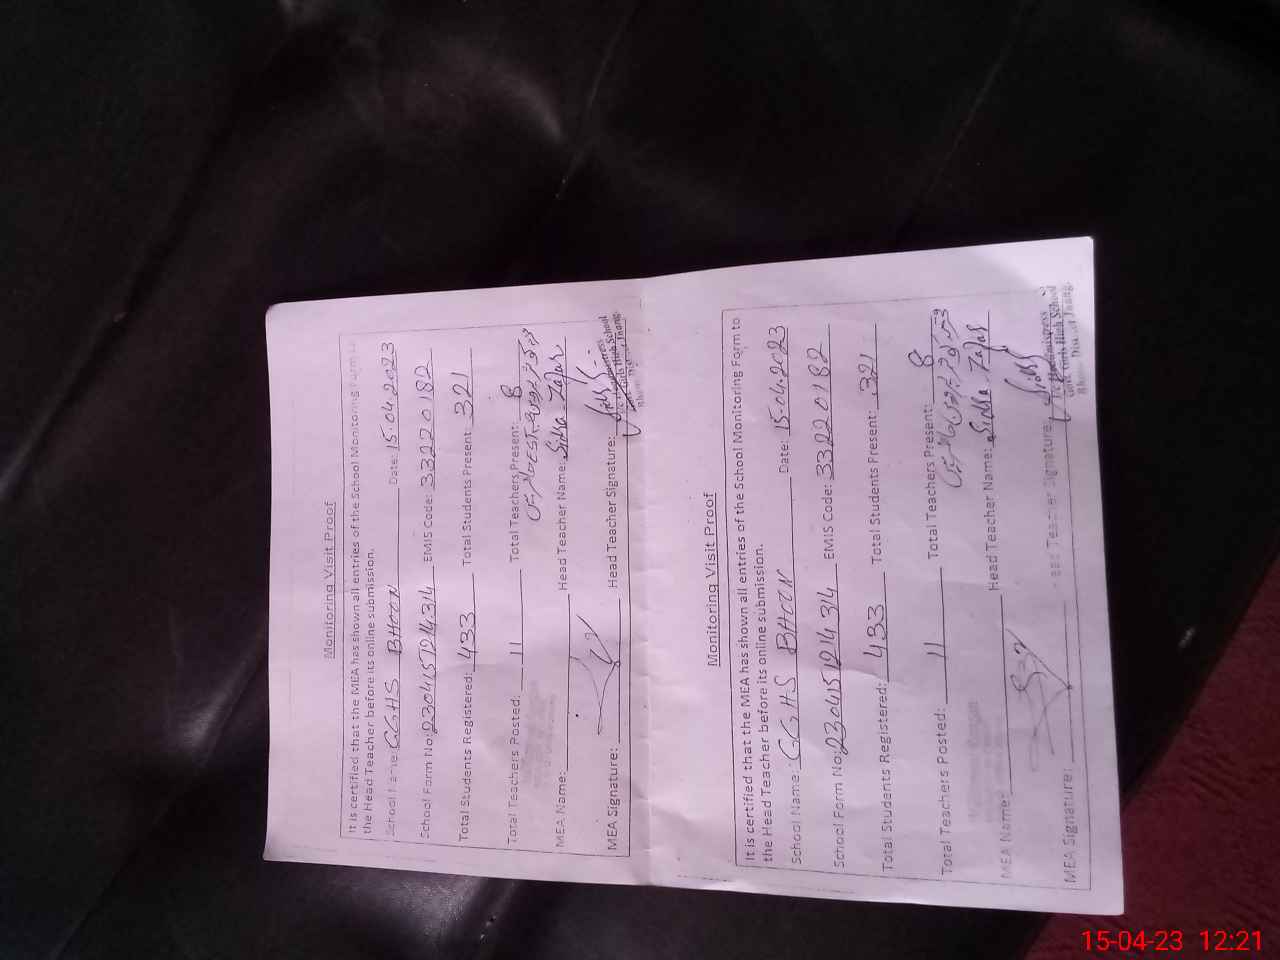 Monitoring Visit Proof
It is certified that the MEA has shown all entries of the School Monitoring Form to
the Head Teacher before its online submission.
School Name: GGHS BHOON Date: 15.04.2023
School Form No: 2304151914314 EMIS Code: 33220182
Total Students Registered: 433 Total Students Present: 321
Total Teachers Posted: 11 Total Teachers Present: 8
MEA Name: Head Teacher Name: Sidra Zafar
MEA Signature: Head Teacher Signature:
Headmistress
Govt. Girls High School
Bhoon District Jhang.
Monitoring Visit Proof
It is certified that the MEA has shown all entries of the School Monitoring Form to
the Head Teacher before its online submission.
School Name: GGHS BHOON Date: 15.04.2023
School Form No: 2304151914314 EMIS Code: 33220182
Total Students Registered: 433 Total Students Present: 321
Total Teachers Posted: 11 Total Teachers Present: 8
MEA Name: Head Teacher Name: Sidra Zafar
MEA Signature: Head Teacher Signature:
Headmistress
Govt. Girls High School
Bhoon District Jhang.
15-04-23 12:21